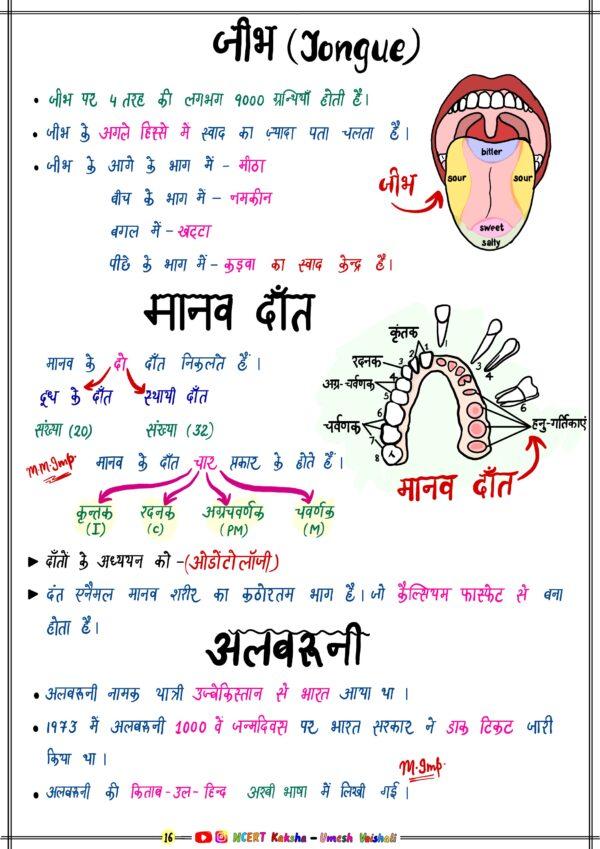 जीभ (Tongue)
• जीभ पर 4 तरह की लगभग 9000 ग्रन्थियाँ होती है।
• जीभ के अगले हिस्से में स्वाद का ज़्यादा पता चलता है।
• जीभ के आगे के भाग में - मीठा
बीच के भाग में - नमकीन
बगल में - खट्टा
पीछे के भाग में - कड़वा का स्वाद केन्द्र है।
bitter
sour
sour
sweet
salty
जीभ
मानव दाँत
मानव के दो दाँत निकलते हैं।
दूध के दाँत स्थायी दाँत
संख्या (20) संख्या (32)
M.M.Imp. मानव के दाँत चार प्रकार के होते हैं।
कृन्तक रदनक अग्रचवर्णक चवर्णक
(I) (C) (PM) (M)
कृंतक
रदनक
अग्र-चर्वणक
चर्वणक
1
2
3
4
5
6
7
8
6
हनु-गर्तिकाएं
मानव दाँत
► दाँतों के अध्ययन को -(ओडोंटोलॉजी)
► दंत एनैमल मानव शरीर का कठोरतम भाग है। जो कैल्सियम फास्फेट से बना
होता है।
अलबरूनी
• अलबरूनी नामक यात्री उज्बेकिस्तान से भारत आया था।
• 1973 में अलबरूनी 1000 वें जन्मदिवस पर भारत सरकार ने डाक टिकट जारी
किया था।
M.Imp.
• अलबरूनी की किताब-उल-हिन्द अरबी भाषा में लिखी गई।
16 NCERT Kaksha - Umesh Vaishali